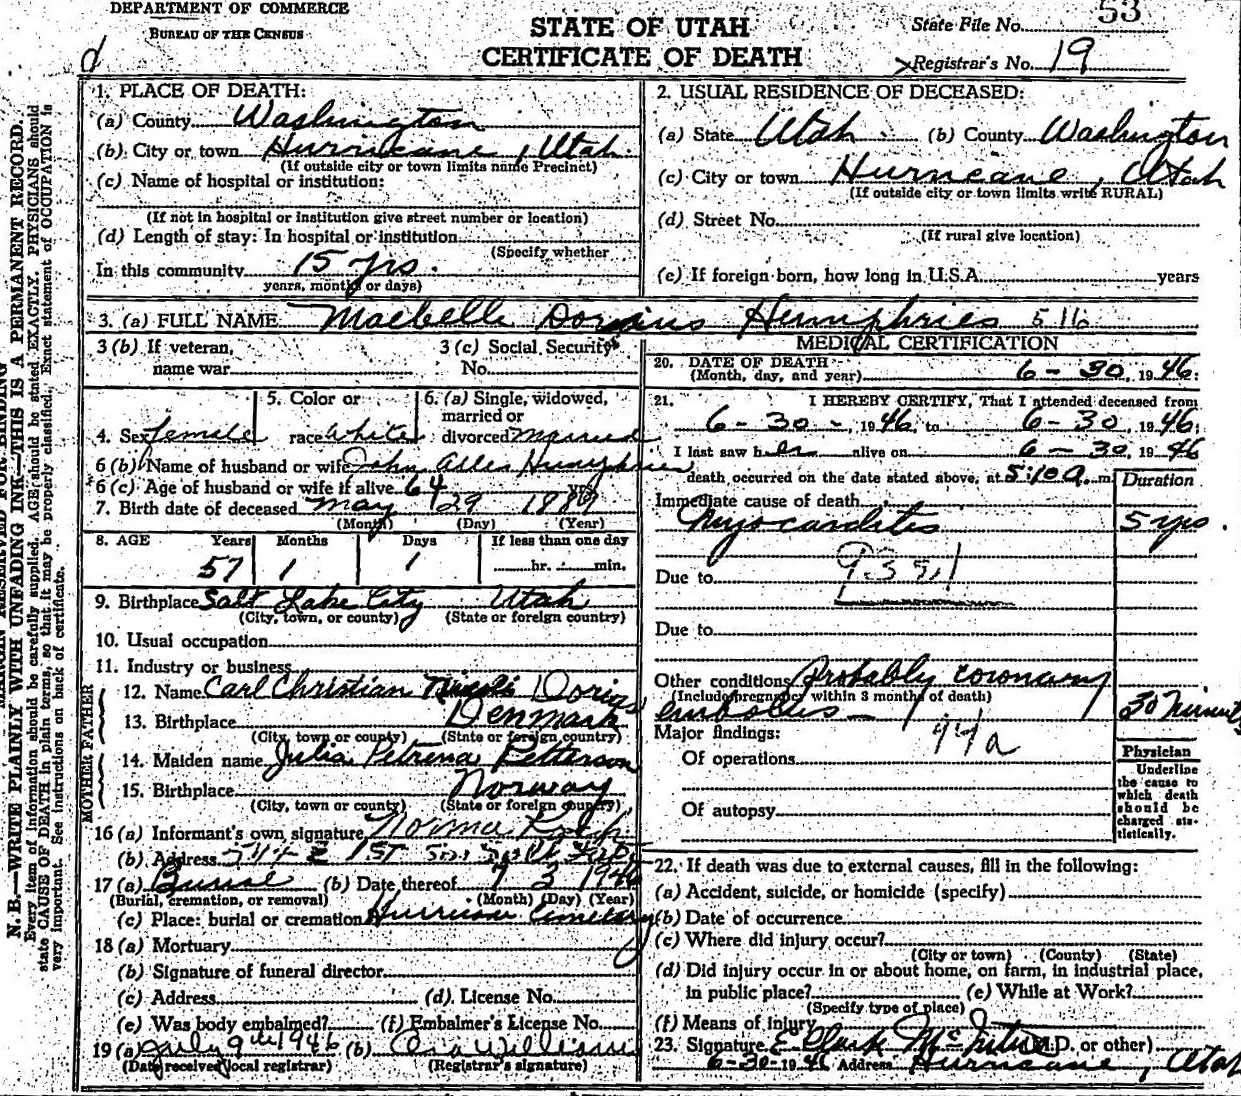 DEPARTMENT OF COMMERCE
BUREAU OF THE CENSUS
d
STATE OF UTAH
CERTIFICATE OF DEATH
State File No. 53
Registrar's No. 19
N. B.—WRITE PLAINLY WITH UNFADING INK—THIS IS A PERMANENT RECORD.
Every item of information should be carefully supplied. AGE should be stated EXACTLY. PHYSICIANS should
state CAUSE OF DEATH in plain terms, so that it may be properly classified. Exact statement of OCCUPATION is
very important. See instructions on back of certificate.
1. PLACE OF DEATH:
(a) County Washington
(b) City or town Hurricane, Utah
(If outside city or town limits name Precinct)
(c) Name of hospital or institution:
(If not in hospital or institution give street number or location)
(d) Length of stay: In hospital or institution
(Specify whether
In this community 15 yrs.
years, months or days)
2. USUAL RESIDENCE OF DECEASED:
(a) State Utah (b) County Washington
(c) City or town Hurricane, Utah
(If outside city or town limits write RURAL)
(d) Street No.
(If rural give location)
(e) If foreign born, how long in U.S.A. years
3. (a) FULL NAME Maebelle Dorius Humphries 516
3 (b) If veteran, name war
3 (c) Social Security No.
4. Sex female
5. Color or race white
6. (a) Single, widowed, married or divorced married
6 (b) Name of husband or wife John Allen Humphries
6 (c) Age of husband or wife if alive 64 yrs
7. Birth date of deceased May 29 1889
(Month) (Day) (Year)
8. AGE Years Months Days If less than one day
57 1 1 hr. min.
9. Birthplace Salt Lake City Utah
(City, town, or county) (State or foreign country)
10. Usual occupation
11. Industry or business
FATHER
12. Name Carl Christian Dorius
13. Birthplace Denmark
(City, town or county) (State or foreign country)
MOTHER
14. Maiden name Julia Petrena Petterson
15. Birthplace Norway
(City, town or county) (State or foreign country)
16 (a) Informant's own signature Norma
(b) Address
17 (a) Burial (b) Date thereof 7 3 1946
(Burial, cremation, or removal) (Month) (Day) (Year)
(c) Place: burial or cremation Hurricane Cemetery
18 (a) Mortuary
(b) Signature of funeral director
(c) Address (d) License No.
(e) Was body embalmed? (f) Embalmer's License No.
19 (a) July 9th 1946 (b) Ora Williams
(Date received local registrar) (Registrar's signature)
MEDICAL CERTIFICATION
20. DATE OF DEATH
(Month, day, and year) 6-30, 1946
21. I HEREBY CERTIFY, That I attended deceased from
6-30-, 1946, to 6-30, 1946;
I last saw her alive on 6-30, 1946
death occurred on the date stated above, at 5:10 a. m.
Duration
Immediate cause of death
Myocarditis 5 yrs.
Due to
Due to
Other conditions Probably coronary
(Include pregnancy within 3 months of death)
embolus — 30 Minutes
Major findings: 94a
Of operations
Of autopsy
Physician
Underline
the cause to
which death
should be
charged sta-
tistically.
22. If death was due to external causes, fill in the following:
(a) Accident, suicide, or homicide (specify)
(b) Date of occurrence
(c) Where did injury occur?
(City or town) (County) (State)
(d) Did injury occur in or about home, on farm, in industrial place,
in public place? (e) While at Work?
(Specify type of place)
(f) Means of injury
23. Signature E Clark McIntire (M.D. or other)
6-30-1946 Address Hurricane, Utah